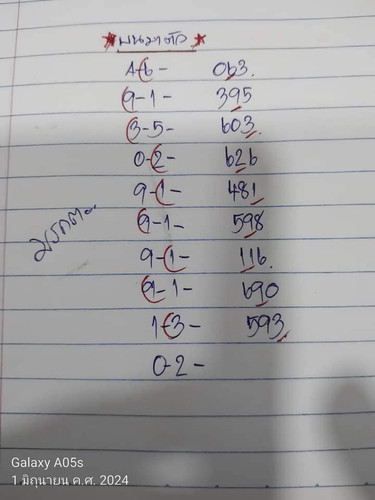 มนมาตัว
4-6- 063.
9-1- 395
3-5- 603.
0-2- 626
9-1- 481
9-1- 598
9-1- 116.
9-1- 690
1-3- 593.
0-2-
Galaxy A05s
1 มิถุนายน ค.ศ. 2024